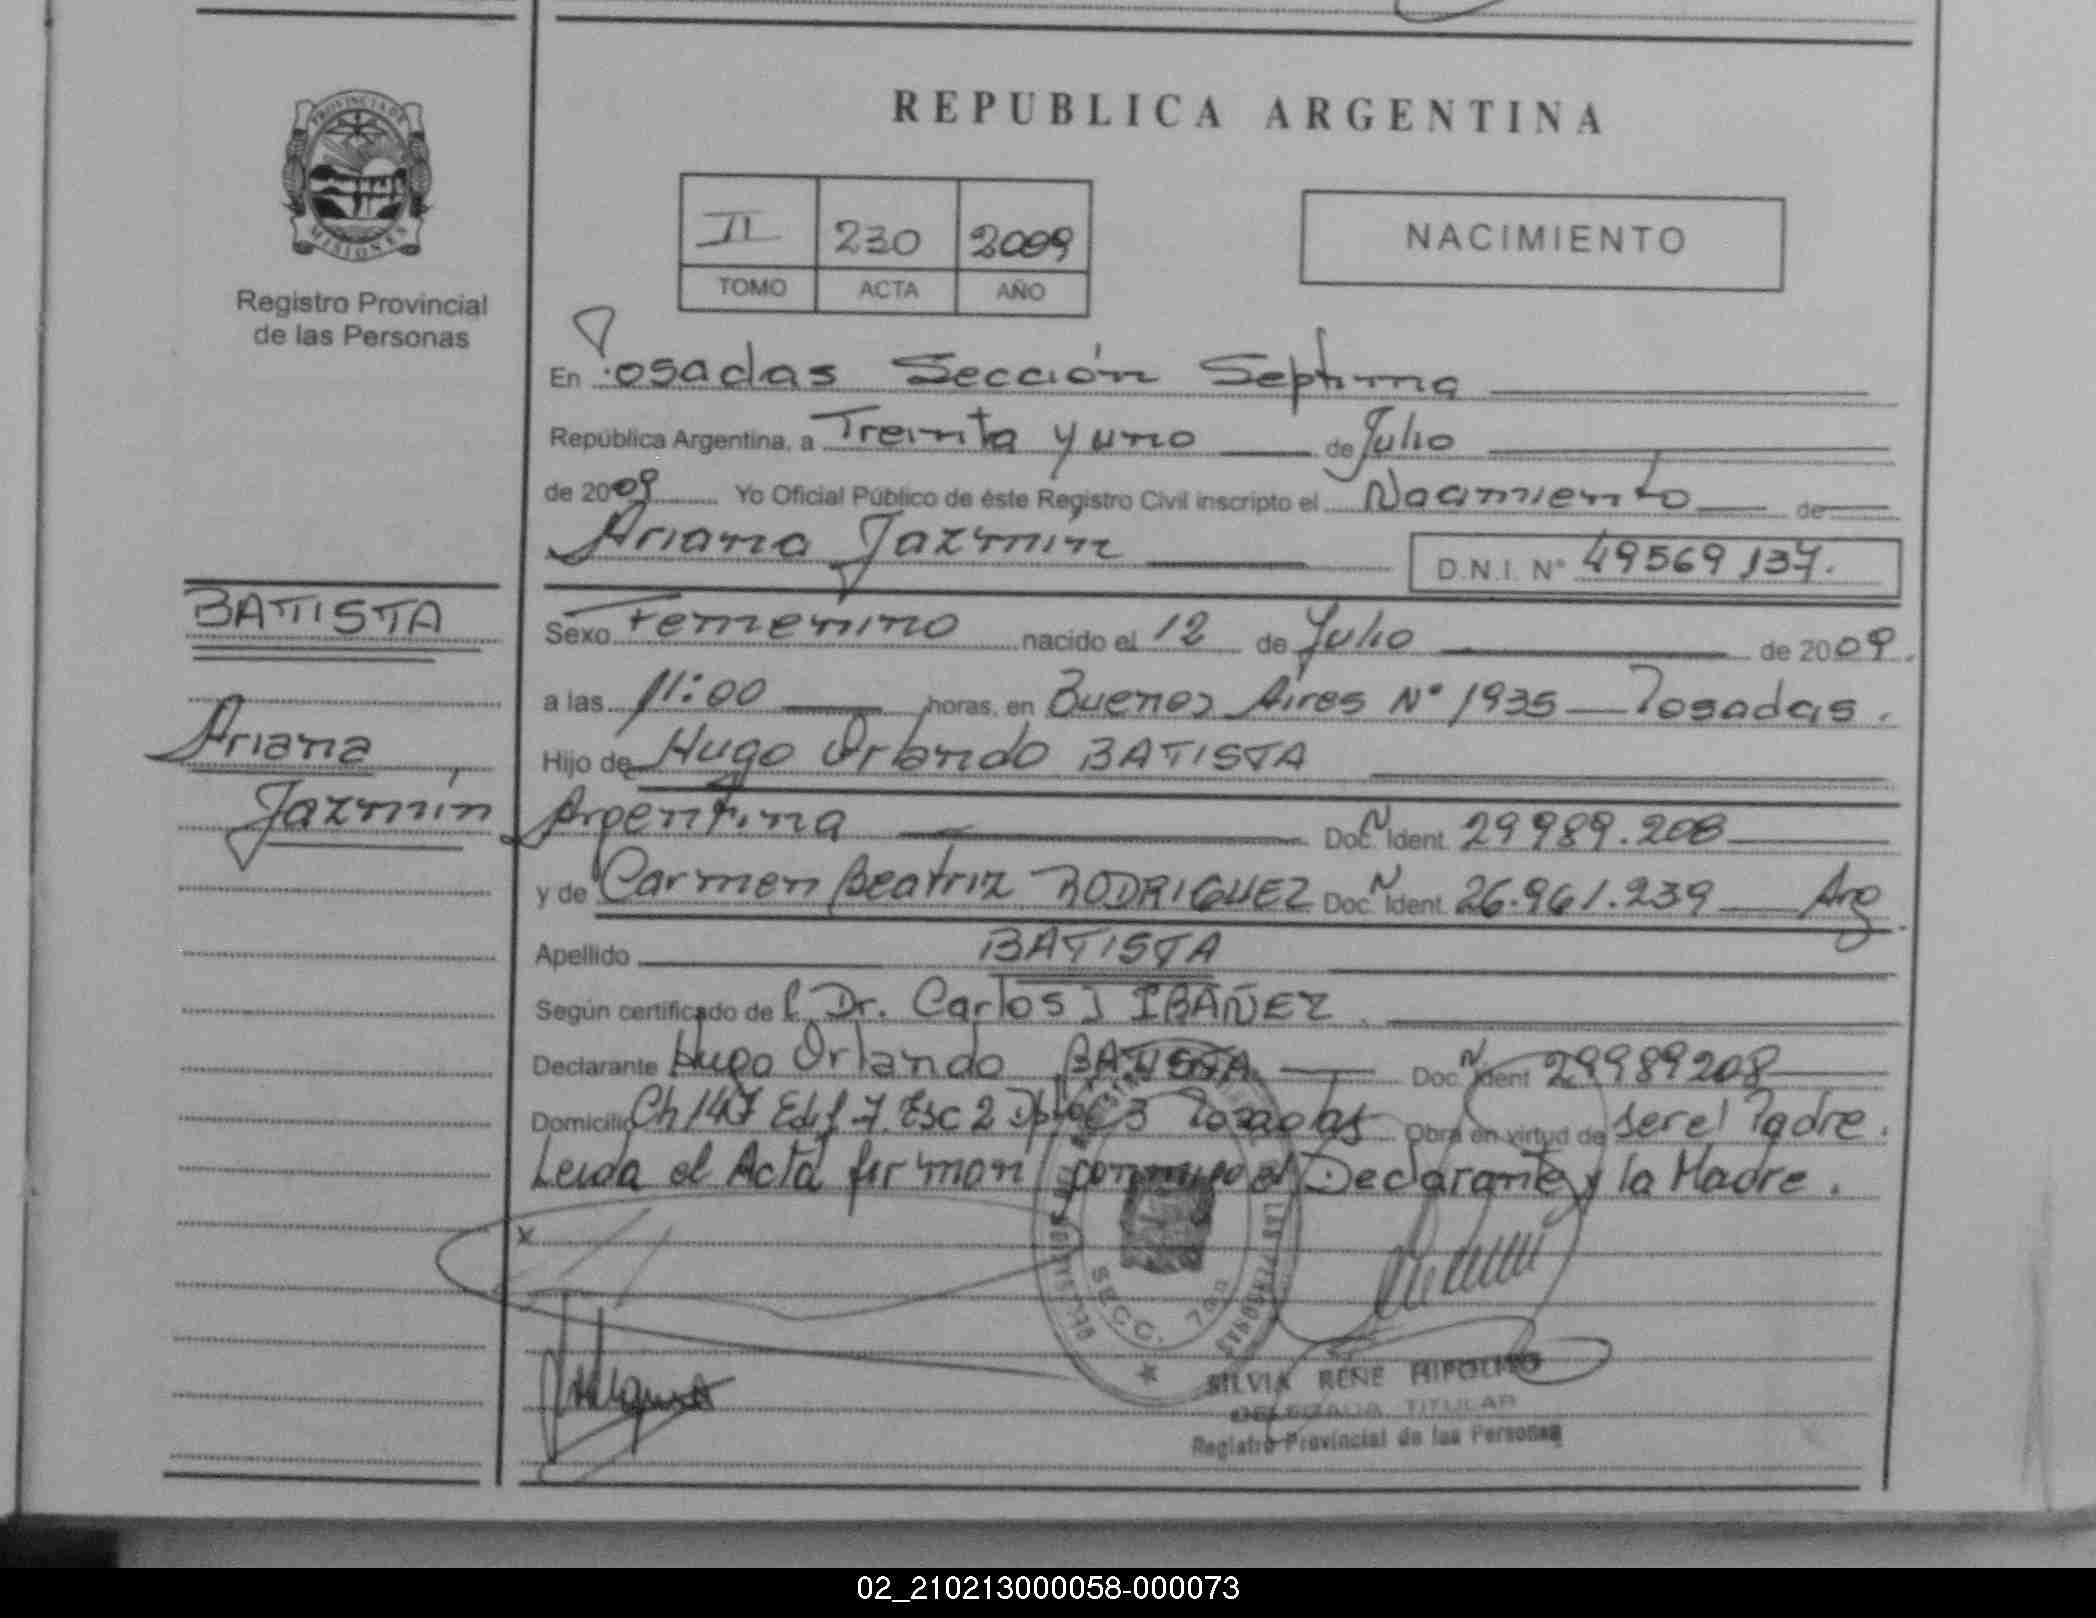 PROVINCIA DE
MISIONES
Registro Provincial
de las Personas
REPUBLICA ARGENTINA
II 230 2009
TOMO ACTA AÑO
NACIMIENTO
En Posadas Sección Septima
República Argentina, a Treinta y uno de Julio
de 2009 Yo Oficial Público de éste Registro Civil inscripto el Nacimiento de
Ariana Jazmín D.N.I. Nº 49569137.
BATISTA
Ariana
Jazmín
Sexo Femenino nacido el 12 de Julio de 2009.
a las 11:00 horas, en Buenos Aires Nº 1935 Posadas.
Hijo de Hugo Orlando BATISTA
Argentina Doc. N Ident. 29989.208
y de Carmen Beatriz RODRIGUEZ Doc. N Ident. 26.961.239 Arg
Apellido BATISTA
Según certificado de Dr. Carlos J IBAÑEZ
Declarante Hugo Orlando BATISTA Doc. N Ident 29989208
Domicilio Ch 147 Edif 7 Esc 2 Dpto C 3 Posadas Obra en virtud de ser el Padre.
Leida el Acta firman conmigo el Declarante y la Madre.
x
SECC. 7ma
SILVIA RENE HIPOLITO
DELEGADA TITULAR
Registro Provincial de las Personas
02_210213000058-000073